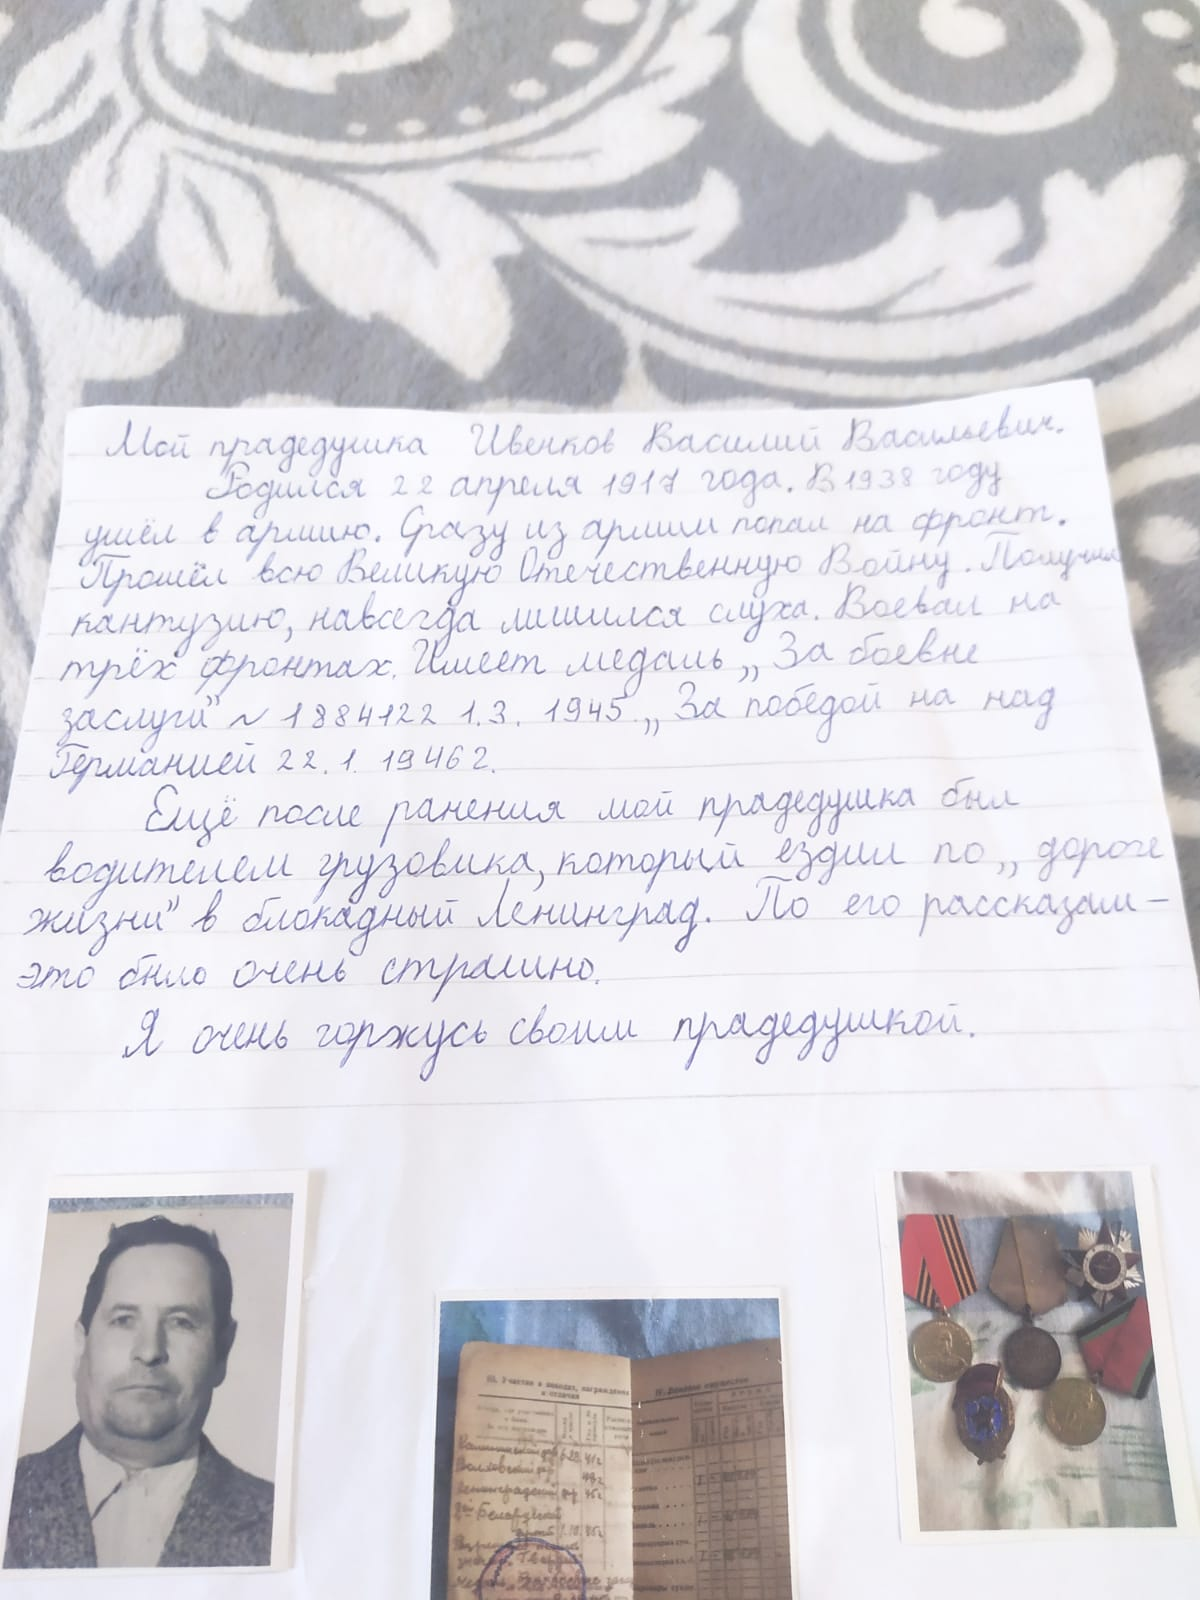 Мой прадедушка Ивенков Василий Васильевич.
Родился 22 апреля 1917 года. В 1938 году
ушёл в армию. Сразу из армии попал на фронт.
Прошёл всю Великую Отечественную Войну. Получил
кантузию, навсегда лишился слуха. Воевал на
трёх фронтах. Имеет медаль „За боевые
заслуги" № 1884122 1.3. 1945. „За победой на над
Германией 22.1. 1946г.
Ещё после ранения мой прадедушка был
водителем грузовика, который ездил по „дороге
жизни" в блокадный Ленинград. По его рассказам –
это было очень страшно.
Я очень горжусь своим прадедушкой.
III. Участие в походах, награждения
и отличия
IV. Вещевое имущество
Волховский фр
Ленинградский фр 45г